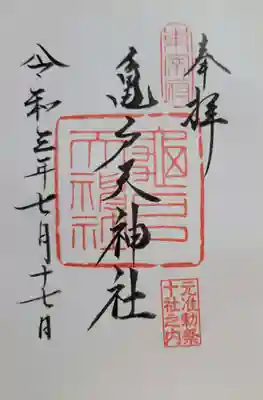 奉拝
元准勅祭
十社之内
東宰府
亀戸天神社
龜戸
天神社
令和三年七月十七日